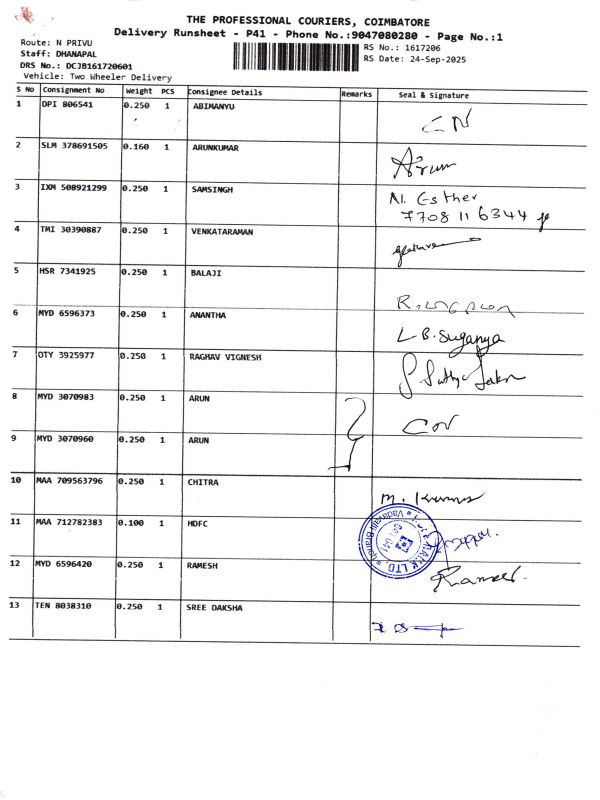 THE PROFESSIONAL COURIERS, COIMBATORE
Delivery Runsheet - P41 - Phone No.:9047080280 - Page No.:1
Route: N PRIVU
RS No.: 1617206
Staff: DHANAPAL
RS Date: 24-Sep-2025
DRS No.: DCJB161720601
Vehicle: Two Wheeler Delivery
S No Consignment No Weight PCS Consignee Details Remarks Seal & Signature
1 DPI 806541 0.250 1 ABIMANYU
2 SLM 378691505 0.160 1 ARUNKUMAR Arun
3 IXM 508921299 0.250 1 SAMSINGH N. Esther
7708116344
4 TMI 30390887 0.250 1 VENKATARAMAN
5 HSR 7341925 0.250 1 BALAJI
6 MYD 6596373 0.250 1 ANANTHA L.B. Suganya
7 OTY 3925977 0.250 1 RAGHAV VIGNESH
8 MYD 3070983 0.250 1 ARUN
9 MYD 3070960 0.250 1 ARUN
10 MAA 709563796 0.250 1 CHITRA
11 MAA 712782383 0.100 1 HDFC BANK LTD. Vadavalli Branch
12 MYD 6596420 0.250 1 RAMESH Ramesh
13 TEN 8038310 0.250 1 SREE DAKSHA